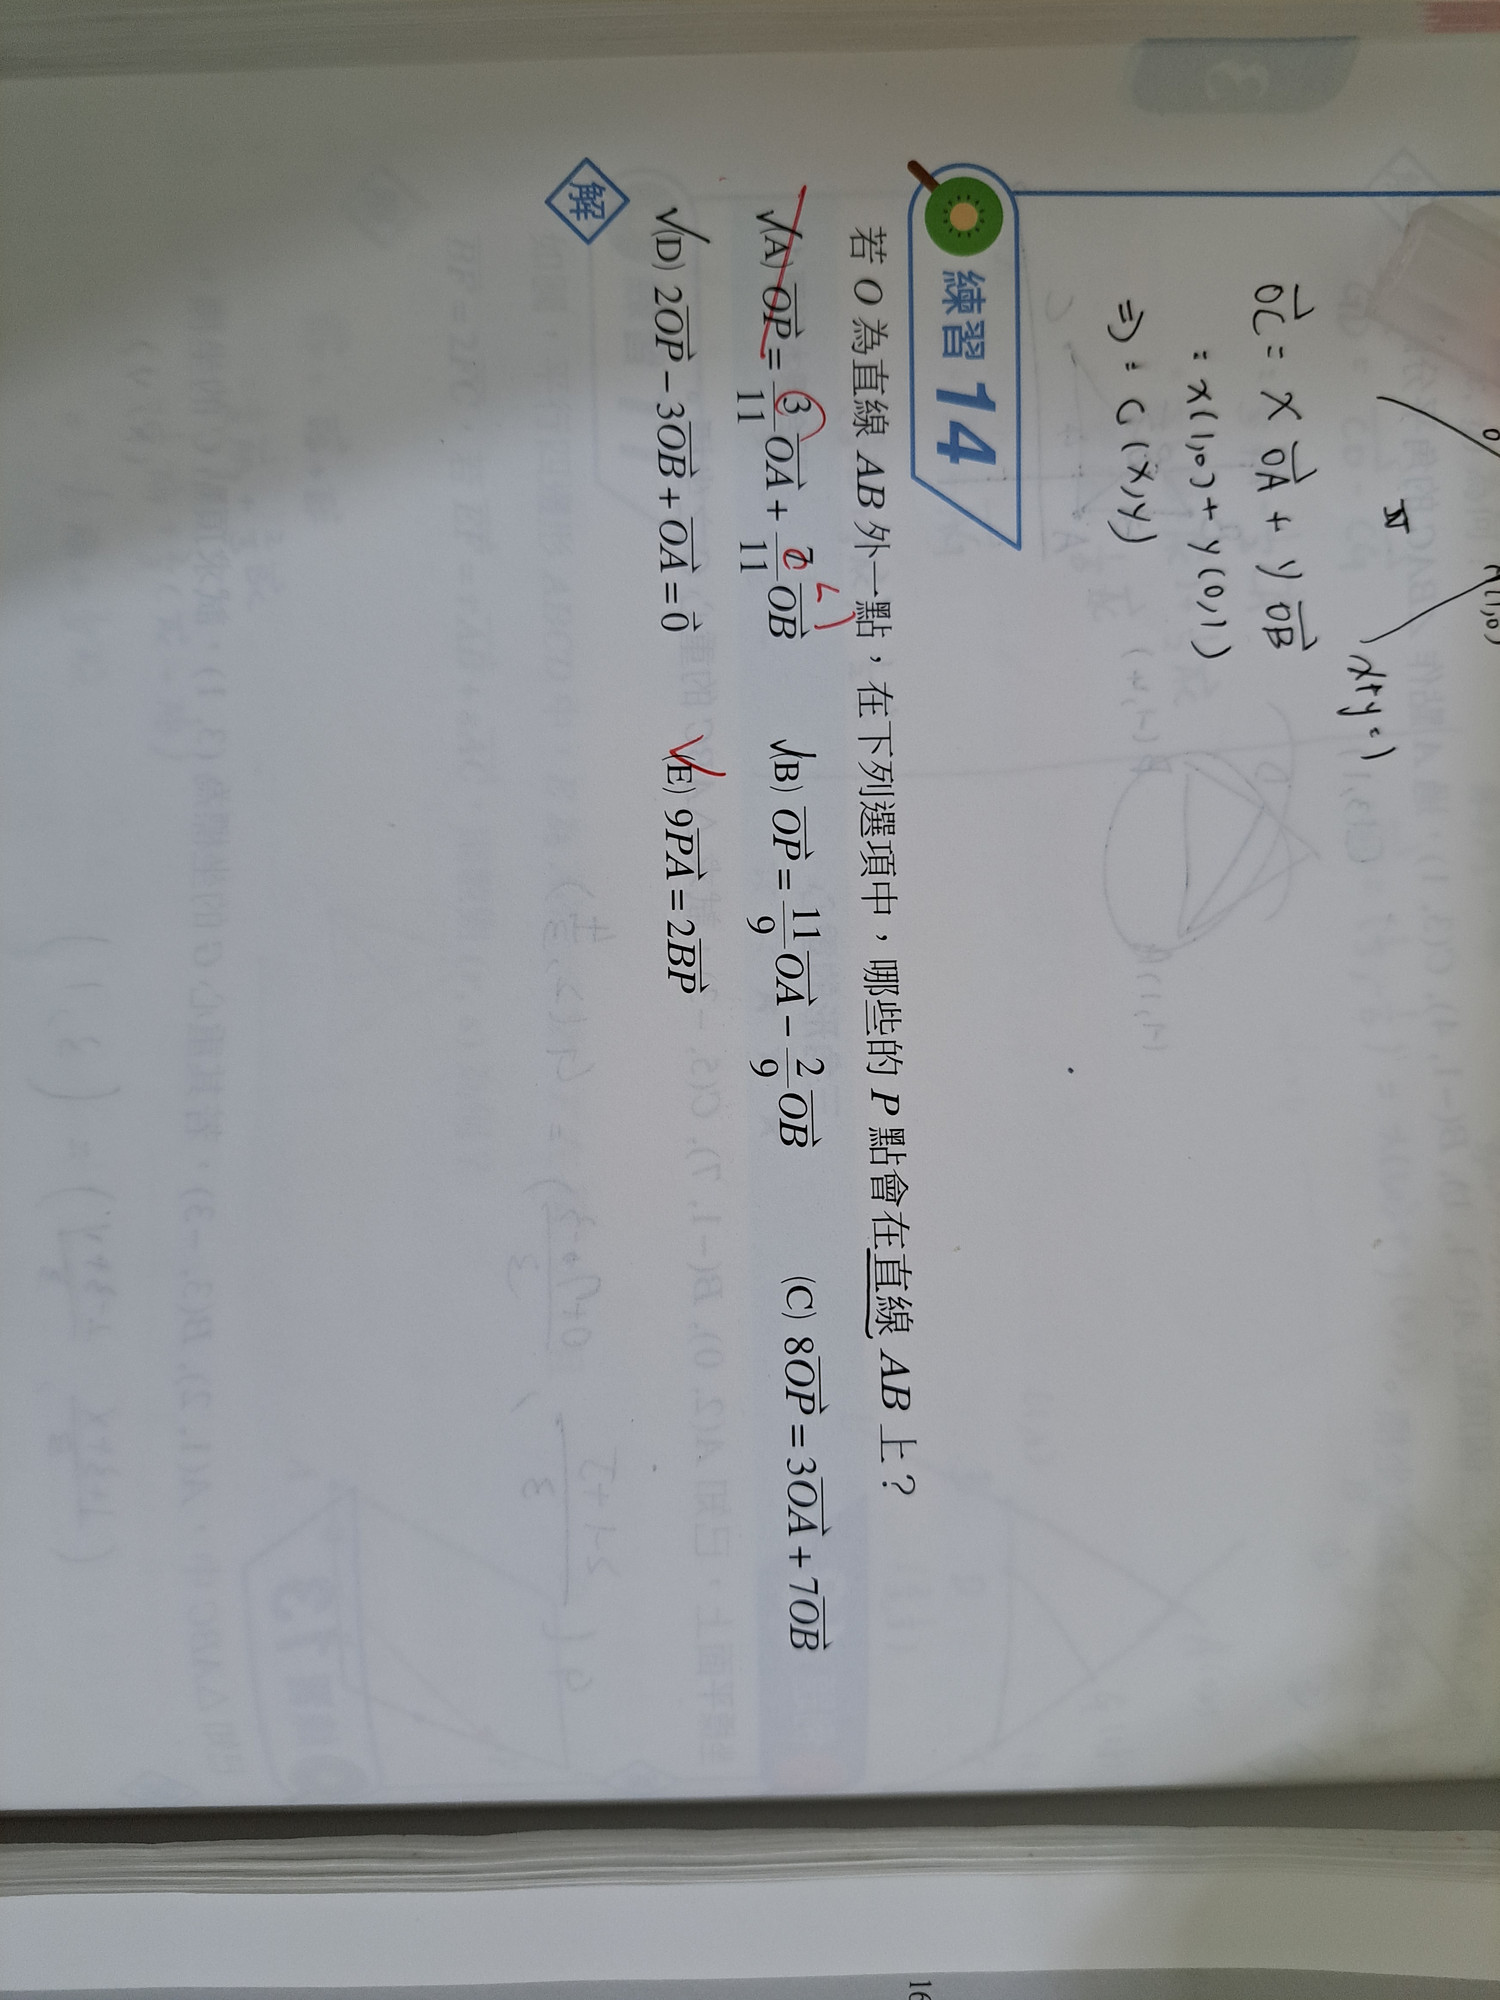 A(1,0)
x+y=1
OC = x OA + y OB
= x(1,0) + y(0,1)
⇒ : C(x,y)
練習 14
若 O 為直線 AB 外一點，在下列選項中，哪些的 P 點會在直線 AB 上？
√(A) OP = 3/11 OA + 7/11 OB √(B) OP = 11/9 OA − 2/9 OB (C) 8OP = 3OA + 7OB
√(D) 2OP − 3OB + OA = 0 √(E) 9PA = 2BP
解
16